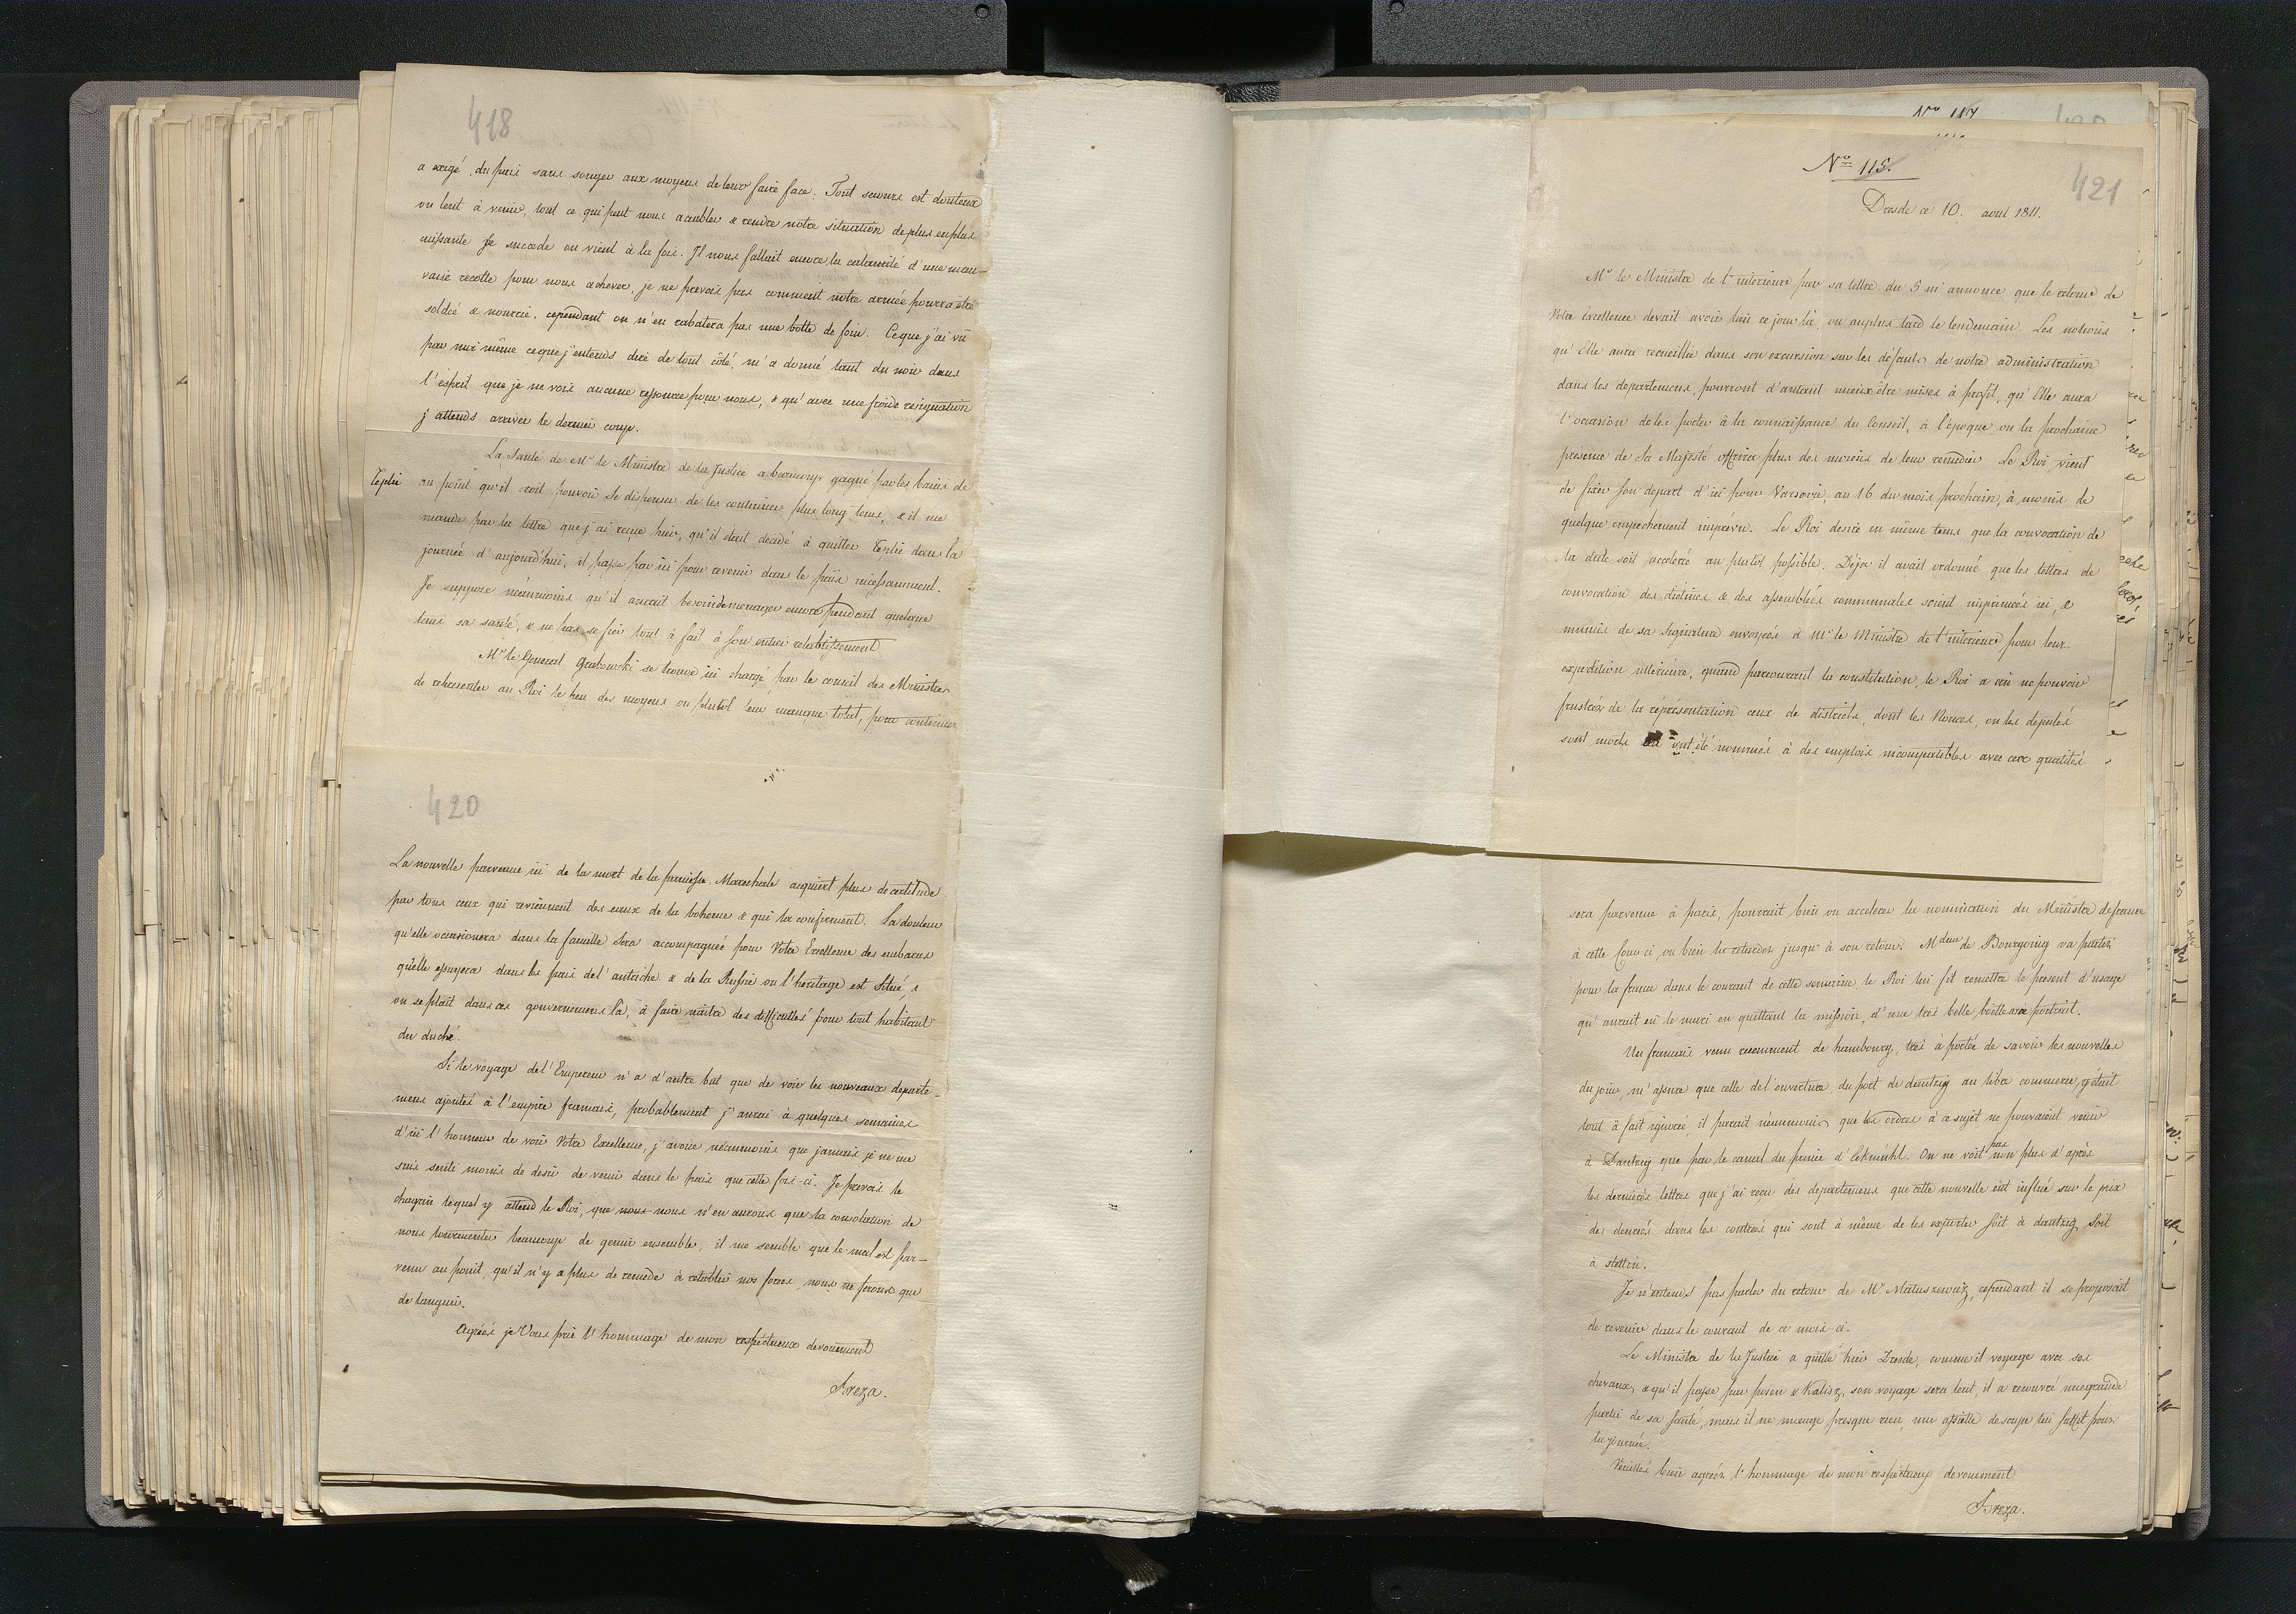 418
a exigé du païs sans songer aux moyens de leur faire face. Tout secours est douteux
ou lent à venir, tout ce qui peut nous acabler & rendre nôtre situation de plus en plus
cuisante se succede ou vient à la fois. Il nous fallait encore la calamité d'une mau-
vaise recolte pour nous achever, je ne prevois pas comment nôtre armée pourra être
soldée & nourrie, cependant on n'en rabatera pas une botte de foin. Ce que j'ai vû
par moi même ce que j'entends dire de tout côté, m'a donné tant du noir dans
l'esprit que je ne vois aucune resource pour nous, & qu'avec une froide resignation
j'attends arriver le dernier coup.
La Santé de Mr le Ministre de la Justice a beaucoup gagné par les bains de
Teplic au point qu'il croit pouvoir se dispenser de les continuer plus long tems, & il me
mande par la lettre que j'ai reçue hier, qu'il etait decidé à quitter Teplic dans la
journée d'aujourd'hui, il passe par ici pour revenir dans le païs incessamment.
Je suppose néanmoins qu'il aurait besoin de menager encore pendant quelque
tems sa santé, & ne pas se fier tout à fait à son entier retablissement
Mr le General Grabowski se trouve ici chargé par le conseil des Ministres
de representer au Roi le peu des moyens ou plutot leur manque total, pour continuer
420
La nouvelle parvenue ici de la mort de la princesse Marechale acquiert plus de certitude
par tous ceux qui reviennent des eaux de la boheme & qui la confirment. La douleur
qu'elle occasionera dans la famille sera accompagnée pour Votre Excellence des embaras
qu'elle essuyera dans les païs de l'autriche & de la Russie ou l'heritage est situé, &
on se plait dans ces gouvernemens là, à faire naître des difficultés pour tout habitant
du duché.
Si le voyage de l'Empereur n'a d'autre but que de voir les nouveaux departe-
mens ajoutés à l'empire francais, probablement j'aurai à quelques semaines
d'ici l'honneur de voir Votre Excellence, j'avoue néanmoins que jamais je ne me
suis senti moins de desir de venir dans le païs que cette fois-ci. Je prevois le
chagrin lequel y attend le Roi, que nous nous n'en aurons que la consolation de
nous tourmenter beaucoup de gemir ensemble, il me semble que le mal est par-
venu au point, qu'il n'y a plus de remede à retablir nos forces, nous ne ferons que
de languir.
Agréés je Vous prie l'hommage de mon respectueux devouement
Breza.
No 115.
421
Dresde ce 10. aout 1811.
Mr le Ministre de l'interieure par sa lettre du 5 m'annonce que le retour de
Votre Excellence devait avoir lieu ce jour là, ou au plus tard le lendemain. Les notions
qu'Elle aura recueillie dans son excursion sur les défauts de notre administration
dans les departemens, pourront d'autant mieux être mises à profit, qu'Elle aura
l'occasion de les porter à la connaissance du Conseil, à l'époque ou la prochaine
présence de Sa Majesté offrira plus des moiens de leur remedier. Le Roi vient
de fixer son depart d'ici pour Varsovie, au 16 du mois prochain, à moins de
quelque empechement imprévu. Le Roi desire en même tems que la convocation de
la diete soit acceleré au plutôt possible. Déja il avait ordonné que les lettres de
convocation des dietines & des assemblées communales soient imprimées ici, &
munies de sa signature envoyées à Mr le Ministre de l'interieure pour leur
expedition ulterieure, quand parcourant la constitution, le Roi a crû ne pouvoir
frustrer de la représentation ceux de districts, dont les Nonces, ou les deputés
sont morts ou ont été nommés à des emplois incompatibles avec ces qualités
sera parvenue à paris, pourrait bien ou accelerer la nomination du Ministre de france
à cette Cour ci, ou bien la retarder jusqu'à son retour. Mdme de Bourgoing va partir
pour la france dans le courant de cette semaine, le Roi lui fit remettre le present d'usage
qu'aurait eu le mari en quittant la mission, d'une tres belle boëtte avec portrait.
Un francais venu recemment de hambourg, tres à portée de savoir les nouvelles
du jour, m'assure que celle de l'ouverture du port de dantzig au libre commerce, y était
tout à fait ignorée, il parait néanmoins que les ordres à ce sujet ne pouvaient venir
à Dantzig que par le canal du prince d'Eckmühl. On ne voit pas non plus d'après
les dernieres lettres que j'ai reçu des departemens que cette nouvelle eut influé sur le prix
des denrées dans les contrées qui sont à même de les exporter soit à dantzig soit
à stettin.
Je n'entens pas parler du retour de Mr Matuszewicz, cependant il se proposait
de revenir dans le courant de ce mois ci.
Le Ministre de la Justice a quitté hier Dresde, comme il voyage avec ses
chevaux, & qu'il passe par posen & Kalisz, son voyage sera lent, il a recouvré une grande
partie de sa santé, mais il ne mange presque rien, une assiette de soupe lui suffit pour
la journée.
Veuillés bien agréer l'hommage de mon respectueux devouement
Breza.